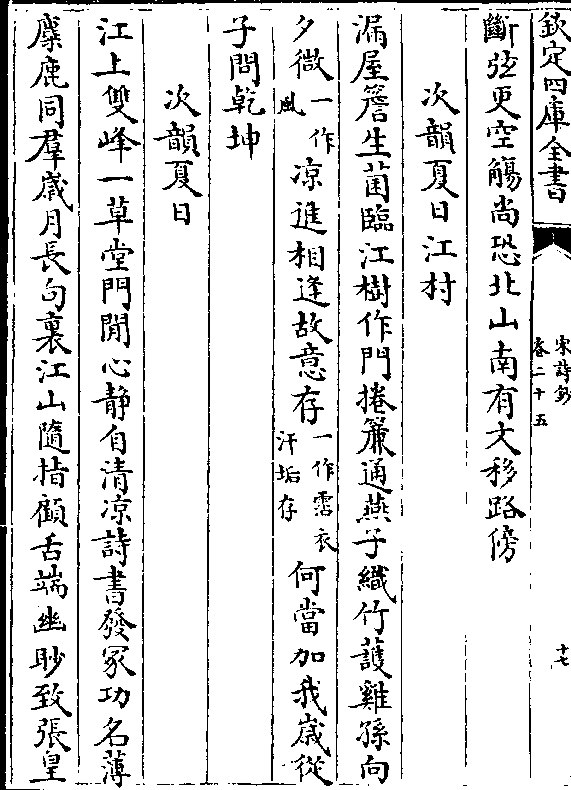 欽定四庫全書
宋詩鈔
卷二十五
十七
斷弦更空觴尚恐北山南有文移路傍
次韻夏日江村
漏屋簷生菌臨江樹作門捲簾通燕子織竹護雞孫向
夕微一作風凉進相逢故意存一作霑衣汗垢存何當加我歲從
子問乾坤
次韻夏日
江上雙峰一草堂門閒心静自清凉詩書發冢功名薄
麋鹿同羣歲月長句裏江山隨指顧舌端幽眇致張皇